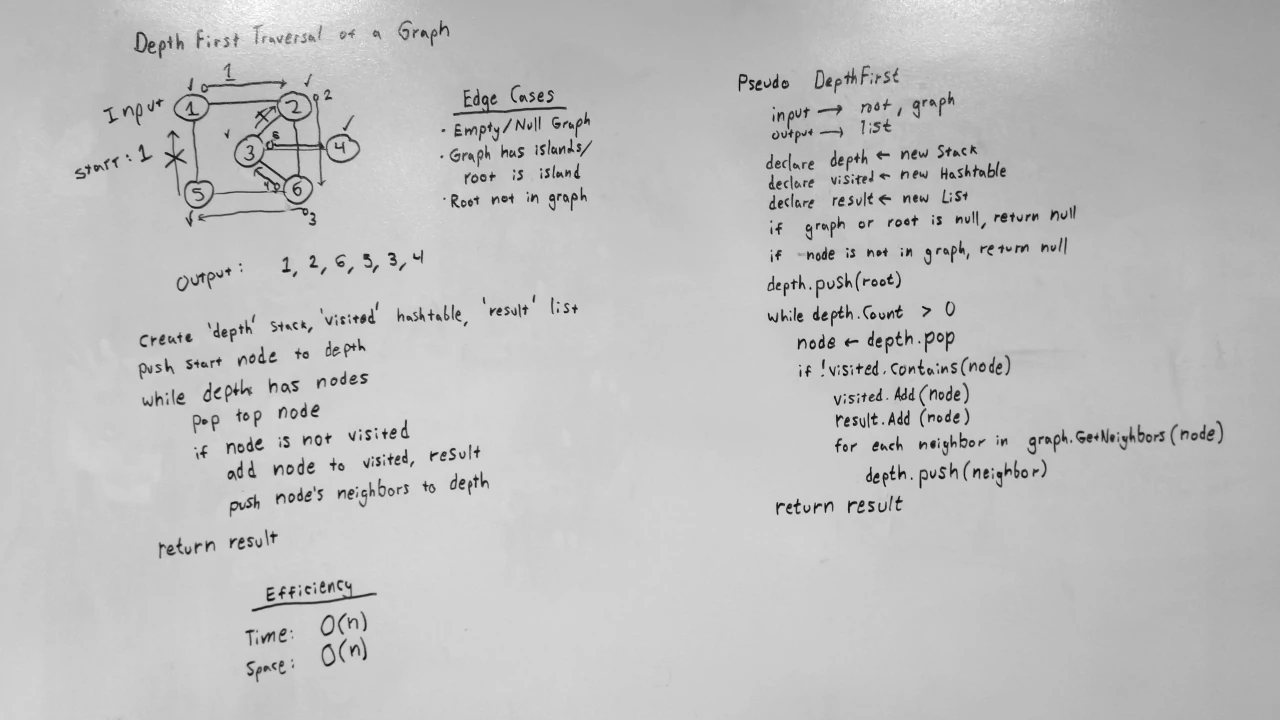 Depth First Traversal of a Graph
Input
start: 1
1
1
2
2
3
5
4
4
5
6
3
Output: 1, 2, 6, 5, 3, 4
Edge Cases
· Empty/Null Graph
· Graph has islands/
root is island
· Root not in graph
create 'depth' stack, 'visited' hashtable, 'result' list
push start node to depth
while depth has nodes
pop top node
if node is not visited
add node to visited, result
push node's neighbors to depth
return result
Efficiency
Time: O(n)
Space: O(n)
Pseudo DepthFirst
input → root, graph
output → list
declare depth ← new Stack
declare visited ← new Hashtable
declare result ← new List
if graph or root is null, return null
if node is not in graph, return null
depth.push(root)
while depth.Count > 0
node ← depth.pop
if !visited.contains(node)
visited.Add(node)
result.Add(node)
for each neighbor in graph.GetNeighbors(node)
depth.push(neighbor)
return result